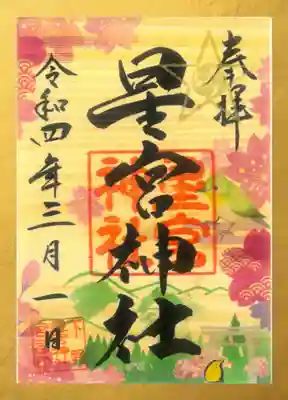 奉拝
星宮神社
星宮神社
令和四年三月一日